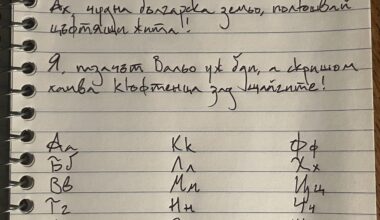 Ах, чудна българска земьо, полюшвай
цъфтящи жита!
Я, пазачът Вальо уж бди, а скришом
хапва кюфтенца зад щайгите!
Аа Кк Фф
Бб Лл Хх
Вв Мм Цц
Гг Нн Чч